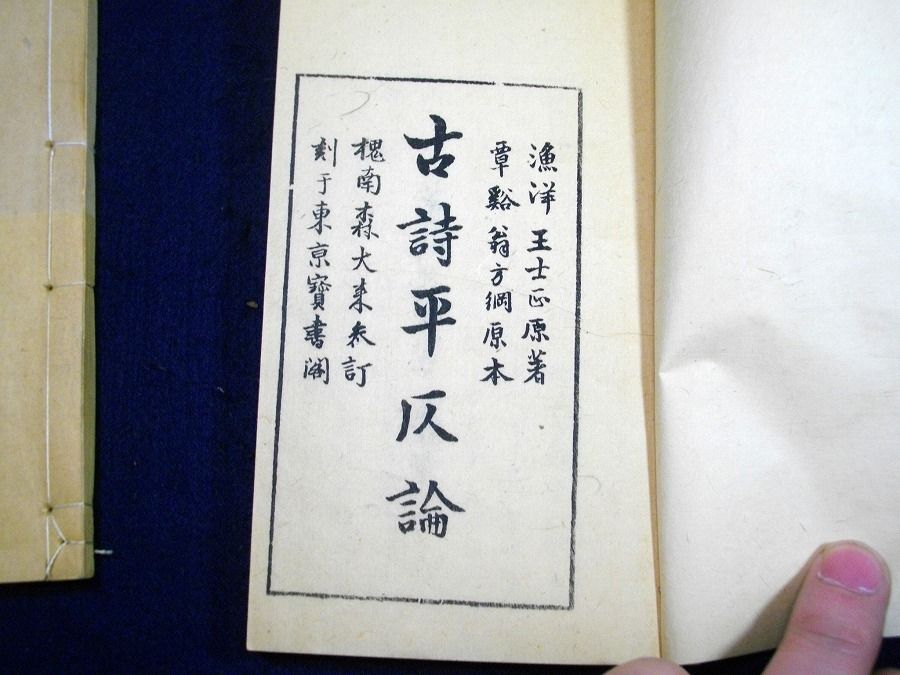 漁洋王士正原著
覃谿翁方綱原本
古詩平仄論
槐南森大来参訂
刻于東京寳書閣